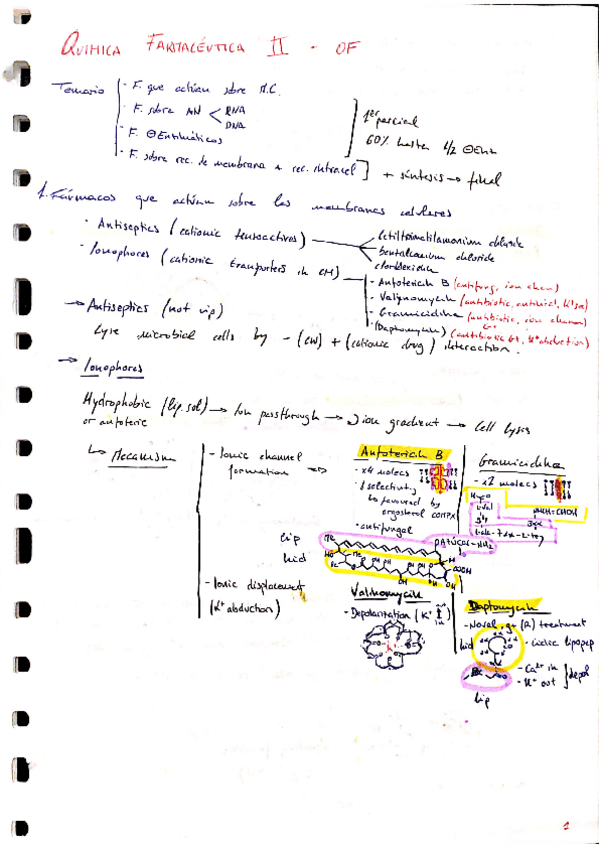 QUIMICA FARMACÉUTICA II - OF
Temario
- F. que actúan sobre M.C.
- F. sobre AN < RNA
DNA
- F. ⊖ Enzimáticos
- F. sobre rec. de membrana + rec. intracel
1er parcial
60% hasta 1/2 ⊖Enz
+ síntesis → final
1. Fármacos que actúan sobre las membranas celulares
· Antiseptics (cationic tensoactives)
cetiltrimetilamonium chloride
benzalconium chloride
clorhexidin
· Ionophores (cationic transporters in CM)
- Anfotericin B (antifung, ion chan)
- Valynomycin (antibiotic,
- Gramicidina (antibiotic, ion channel)
(Daptomycin) (antibiotic G+, K+ abduction)
→ Antiseptics (not vip)
Lyse microbial cells by - (CW) + (cationic drug) interaction.
→ Ionophores
Hydrophobic (lip. sol) → Ion passthrough → ion gradient → Cell lysis
or anfoteric
↳ Mecanism
- Ionic channel
formation
Anfotericin B
- x4 molecs
selectivity
↳ favoured by
ergosterol
- antifungal
Gramicidina
- x2 molecs
lip
hid
OH
COOH
- Ionic displacement
(K+ abduction)
Valinomycin
- Depolaritation (K+
K+
Daptomycin
- Novel, g+ (R) treatment
hid
- ciclic lipopep
- Ca2+ in
- K+ out
} depol
lip
1